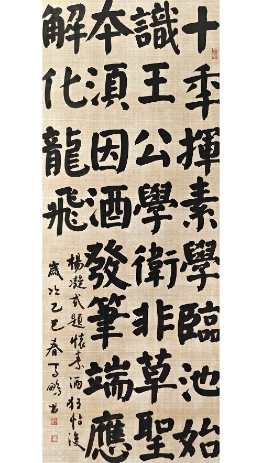 十年揮素學臨池始
識王公學衛非草聖
本湏因酒發筆端應
解化龍飛
楊凝式題懷素酒狂帖後
歲次乙巳春 鵬書